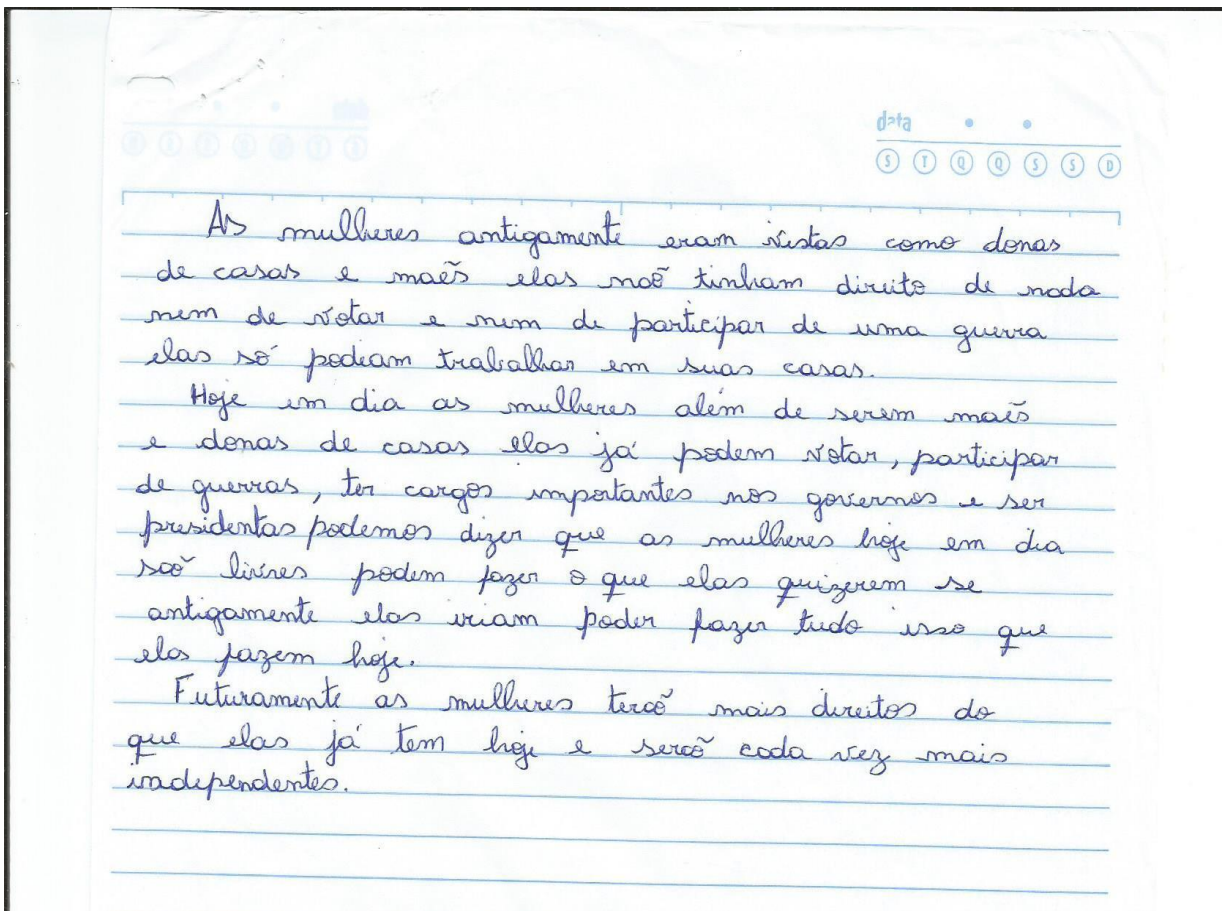 data
S T Q Q S S D
As mulheres antigamente eram vistas como donas
de casas e maẽs elas noõ tinham direito de nada
nem de votar e nem de participar de uma guerra
elas só podiam trabalhar em suas casas.
Hoje em dia as mulheres além de serem maẽs
e donas de casas elas já podem votar, participar
de guerras, ter cargos importantes nos governos e ser
presidentas podemos dizer que as mulheres hoje em dia
saõ livres podem fazer o que elas quizerem se
antigamente elas iriam poder fazer tudo isso que
elas fazem hoje.
Futuramente as mulheres teraõ mais direitos do
que elas já tem hoje e seraõ cada vez mais
independentes.